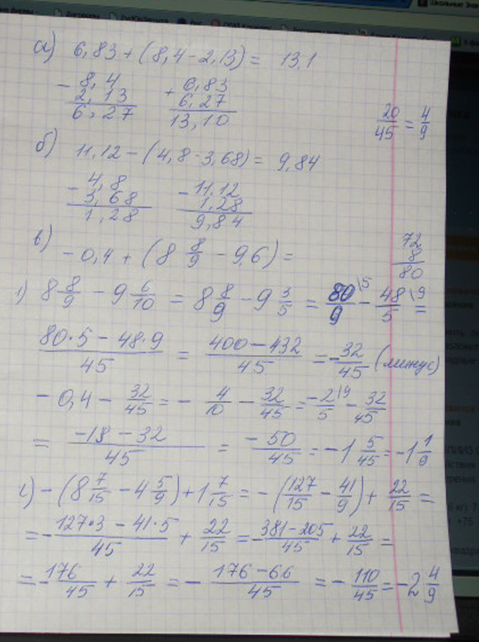 а) 6,83+(8,4-2,13)= 13,1
- 8,4
2,13
6,27
+ 6,83
6,27
13,10
20/45 = 4/9
б) 11,12-(4,8-3,68)= 9,84
- 4,8
3,68
1,28
- 11,12
1,28
9,84
в) -0,4+(8 8/9 - 9,6)=
72
8
80
1) 8 8/9 - 9 6/10 = 8 8/9 - 9 3/5 = 80/9 \5 - 48/5 \9 =
80·5-48·9/45 = 400-432/45 = -32/45 (минус)
-0,4 - 32/45 = - 4/10 - 32/45 = -2/5 \9 - 32/45
= -18-32/45 = -50/45 = -1 5/45 = -1 1/9
г) -(8 7/15 - 4 5/9)+1 7/15 = -(127/15 - 41/9)+ 22/15 =
= - 127·3-41·5/45 + 22/15 = - 381-205/45 + 22/15 =
= - 176/45 + 22/15 = - 176-66/45 = - 110/45 = -2 4/9